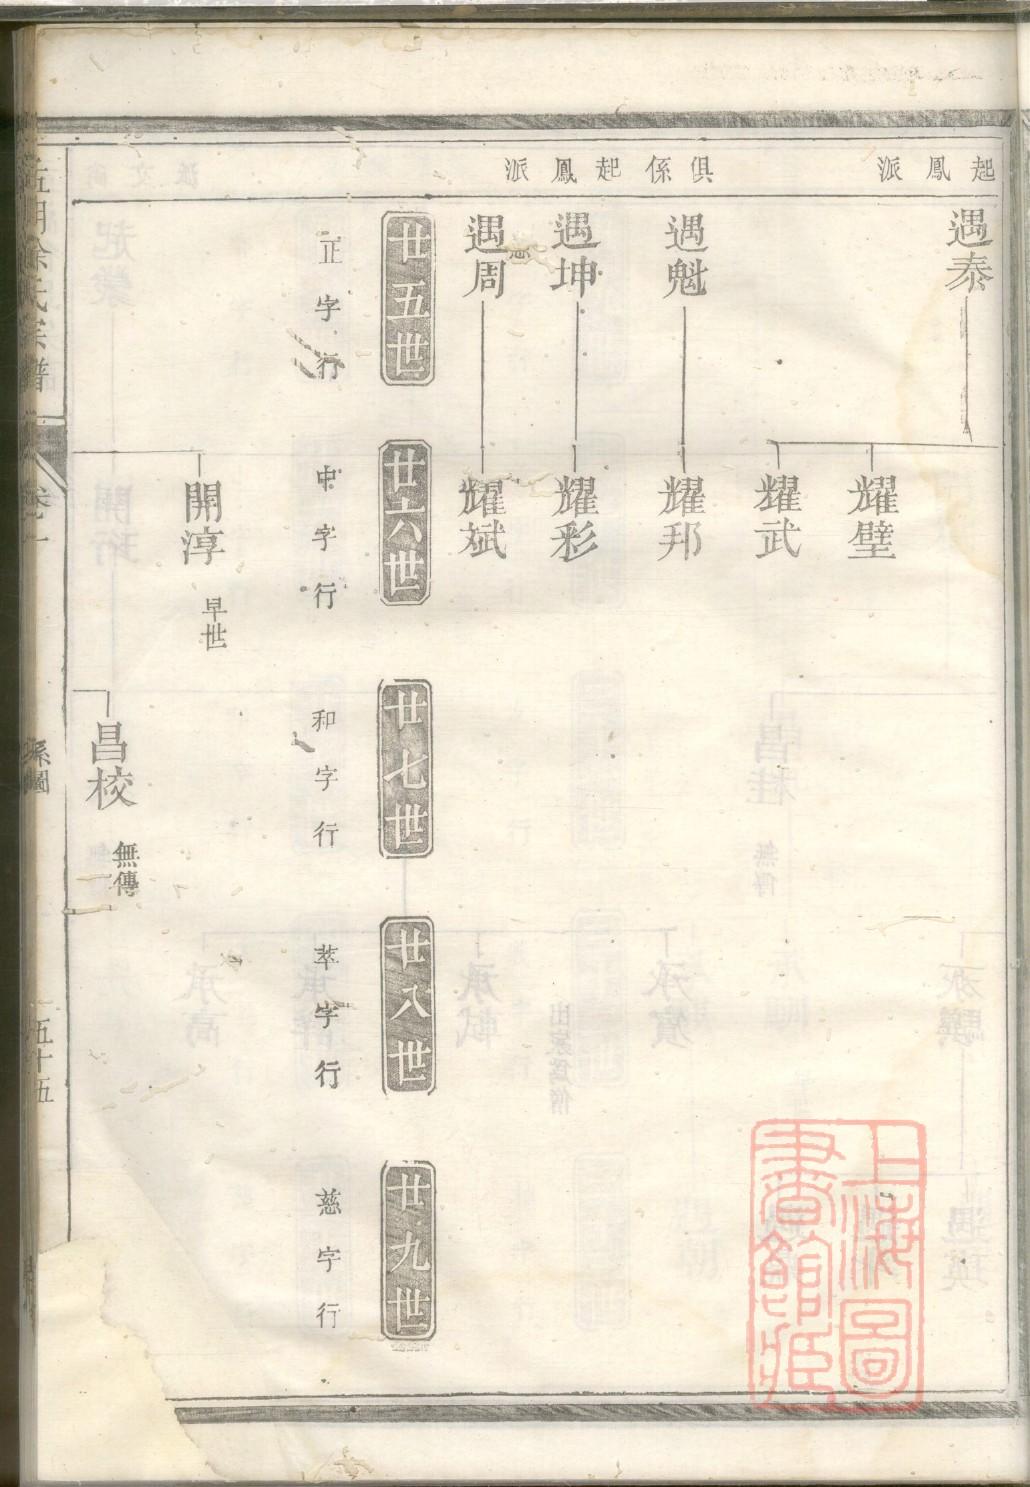 起鳳派
俱係起鳳派
遇泰
遇魁
遇坤
遇周
耀璧
耀武
耀邦
耀彩
耀斌
廿五世
廿六世
廿七世
廿八世
廿九世
正字行
中字行
和字行
萃字行
慈字行
開淳
早世
昌校
無傳
徐氏宗譜
系圖
五十五
上海圖書館藏